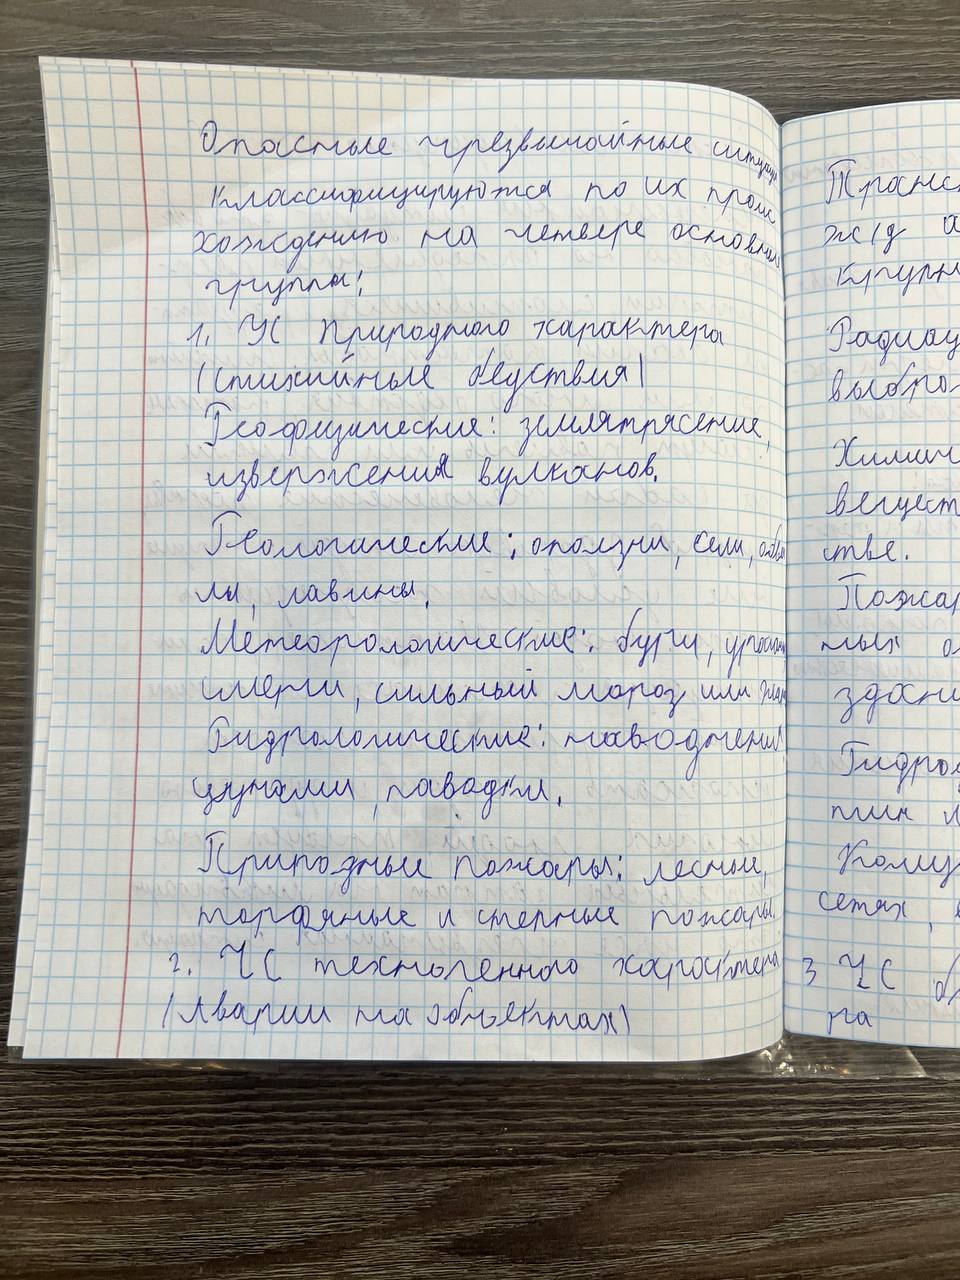 Опасные чрезвычайные ситуации
классифицируются по их проис
хождению на четыре основные
группы:
1. ЧС природного характера
(стихийные бедствия)
Геофизические: землятрясение,
извержения вулканов.
Геологические: оползни, сели, обва
лы, лавины.
Метеорологические: бури, ураганы
смерчи, сильный мороз или жара
Гидрологические: наводнения
цунами, паводки.
Природные пожары: лесные,
торфяные и степные пожары.
2. ЧС техногенного характера
(Аварии на объектах)
ж/д
Химич
вещест
стве.
Пожар
ных
здани
Гидро
Комму
сетях,
3 ЧС